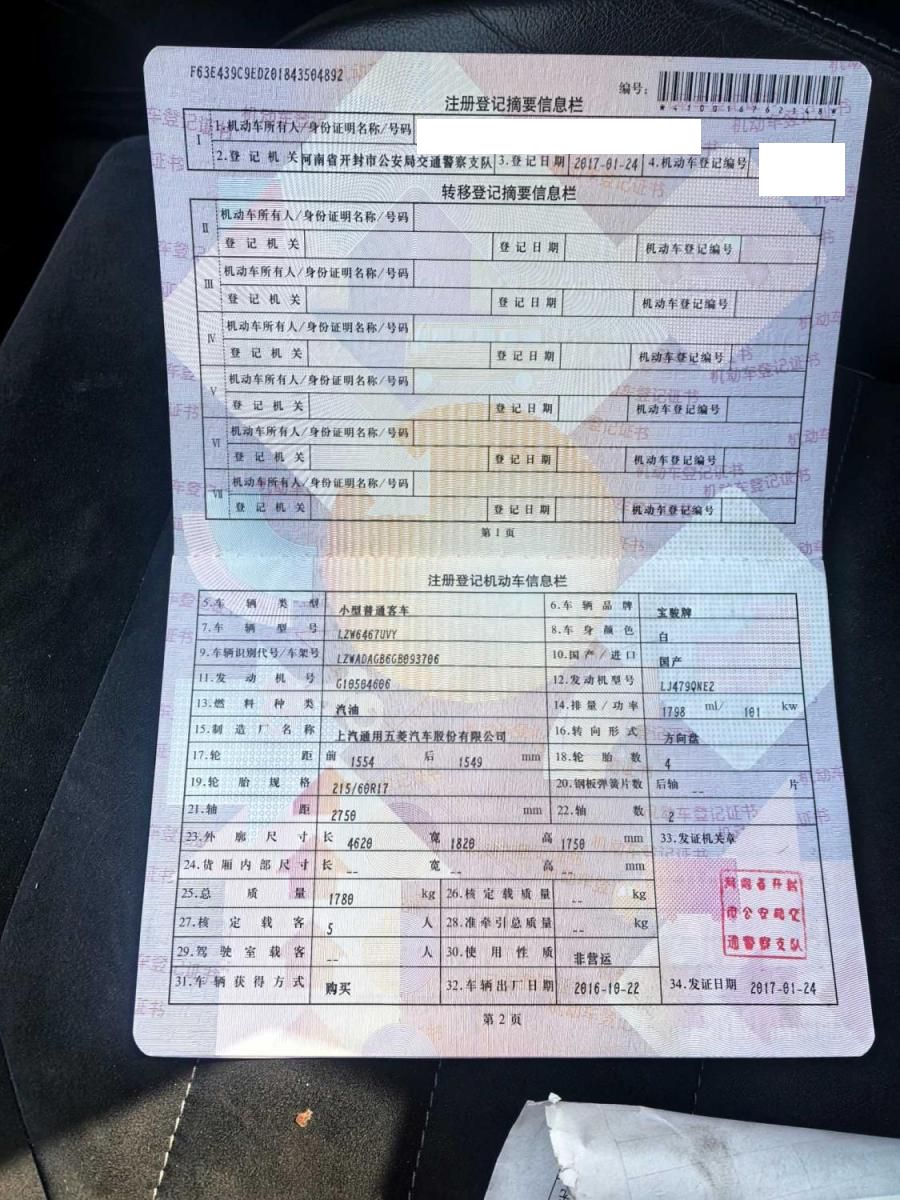 F63E439C9ED201843504892
编号:
*410014762148*
注册登记摘要信息栏
I 1.机动车所有人/身份证明名称/号码
2.登记机关 河南省开封市公安局交通警察支队 3.登记日期 2017-01-24 4.机动车登记编号
转移登记摘要信息栏
II 机动车所有人/身份证明名称/号码
登记机关 登记日期 机动车登记编号
III 机动车所有人/身份证明名称/号码
登记机关 登记日期 机动车登记编号
IV 机动车所有人/身份证明名称/号码
登记机关 登记日期 机动车登记编号
V 机动车所有人/身份证明名称/号码
登记机关 登记日期 机动车登记编号
VI 机动车所有人/身份证明名称/号码
登记机关 登记日期 机动车登记编号
VII 机动车所有人/身份证明名称/号码
登记机关 登记日期 机动车登记编号
第1页
注册登记机动车信息栏
5.车辆类型 小型普通客车 6.车辆品牌 宝骏牌
7.车辆型号 LZW6467UVY 8.车身颜色 白
9.车辆识别代号/车架号 LZWADAGB6GB093706 10.国产/进口 国产
11.发动机号 G10504606 12.发动机型号 LJ479QNE2
13.燃料种类 汽油 14.排量/功率 1798 ml/ 101 kw
15.制造厂名称 上汽通用五菱汽车股份有限公司 16.转向形式 方向盘
17.轮距 前 1554 后 1549 mm 18.轮胎数 4
19.轮胎规格 215/60R17 20.钢板弹簧片数 后轴 -- 片
21.轴距 2750 mm 22.轴数 2
23.外廓尺寸 长 4620 宽 1820 高 1750 mm 33.发证机关章
24.货厢内部尺寸 长 -- 宽 -- 高 -- mm
25.总质量 1780 kg 26.核定载质量 -- kg
27.核定载客 5 人 28.准牵引总质量 -- kg
29.驾驶室载客 -- 人 30.使用性质 非营运
河南省开封
市公安局交
通警察支队
31.车辆获得方式 购买 32.车辆出厂日期 2016-10-22 34.发证日期 2017-01-24
第2页